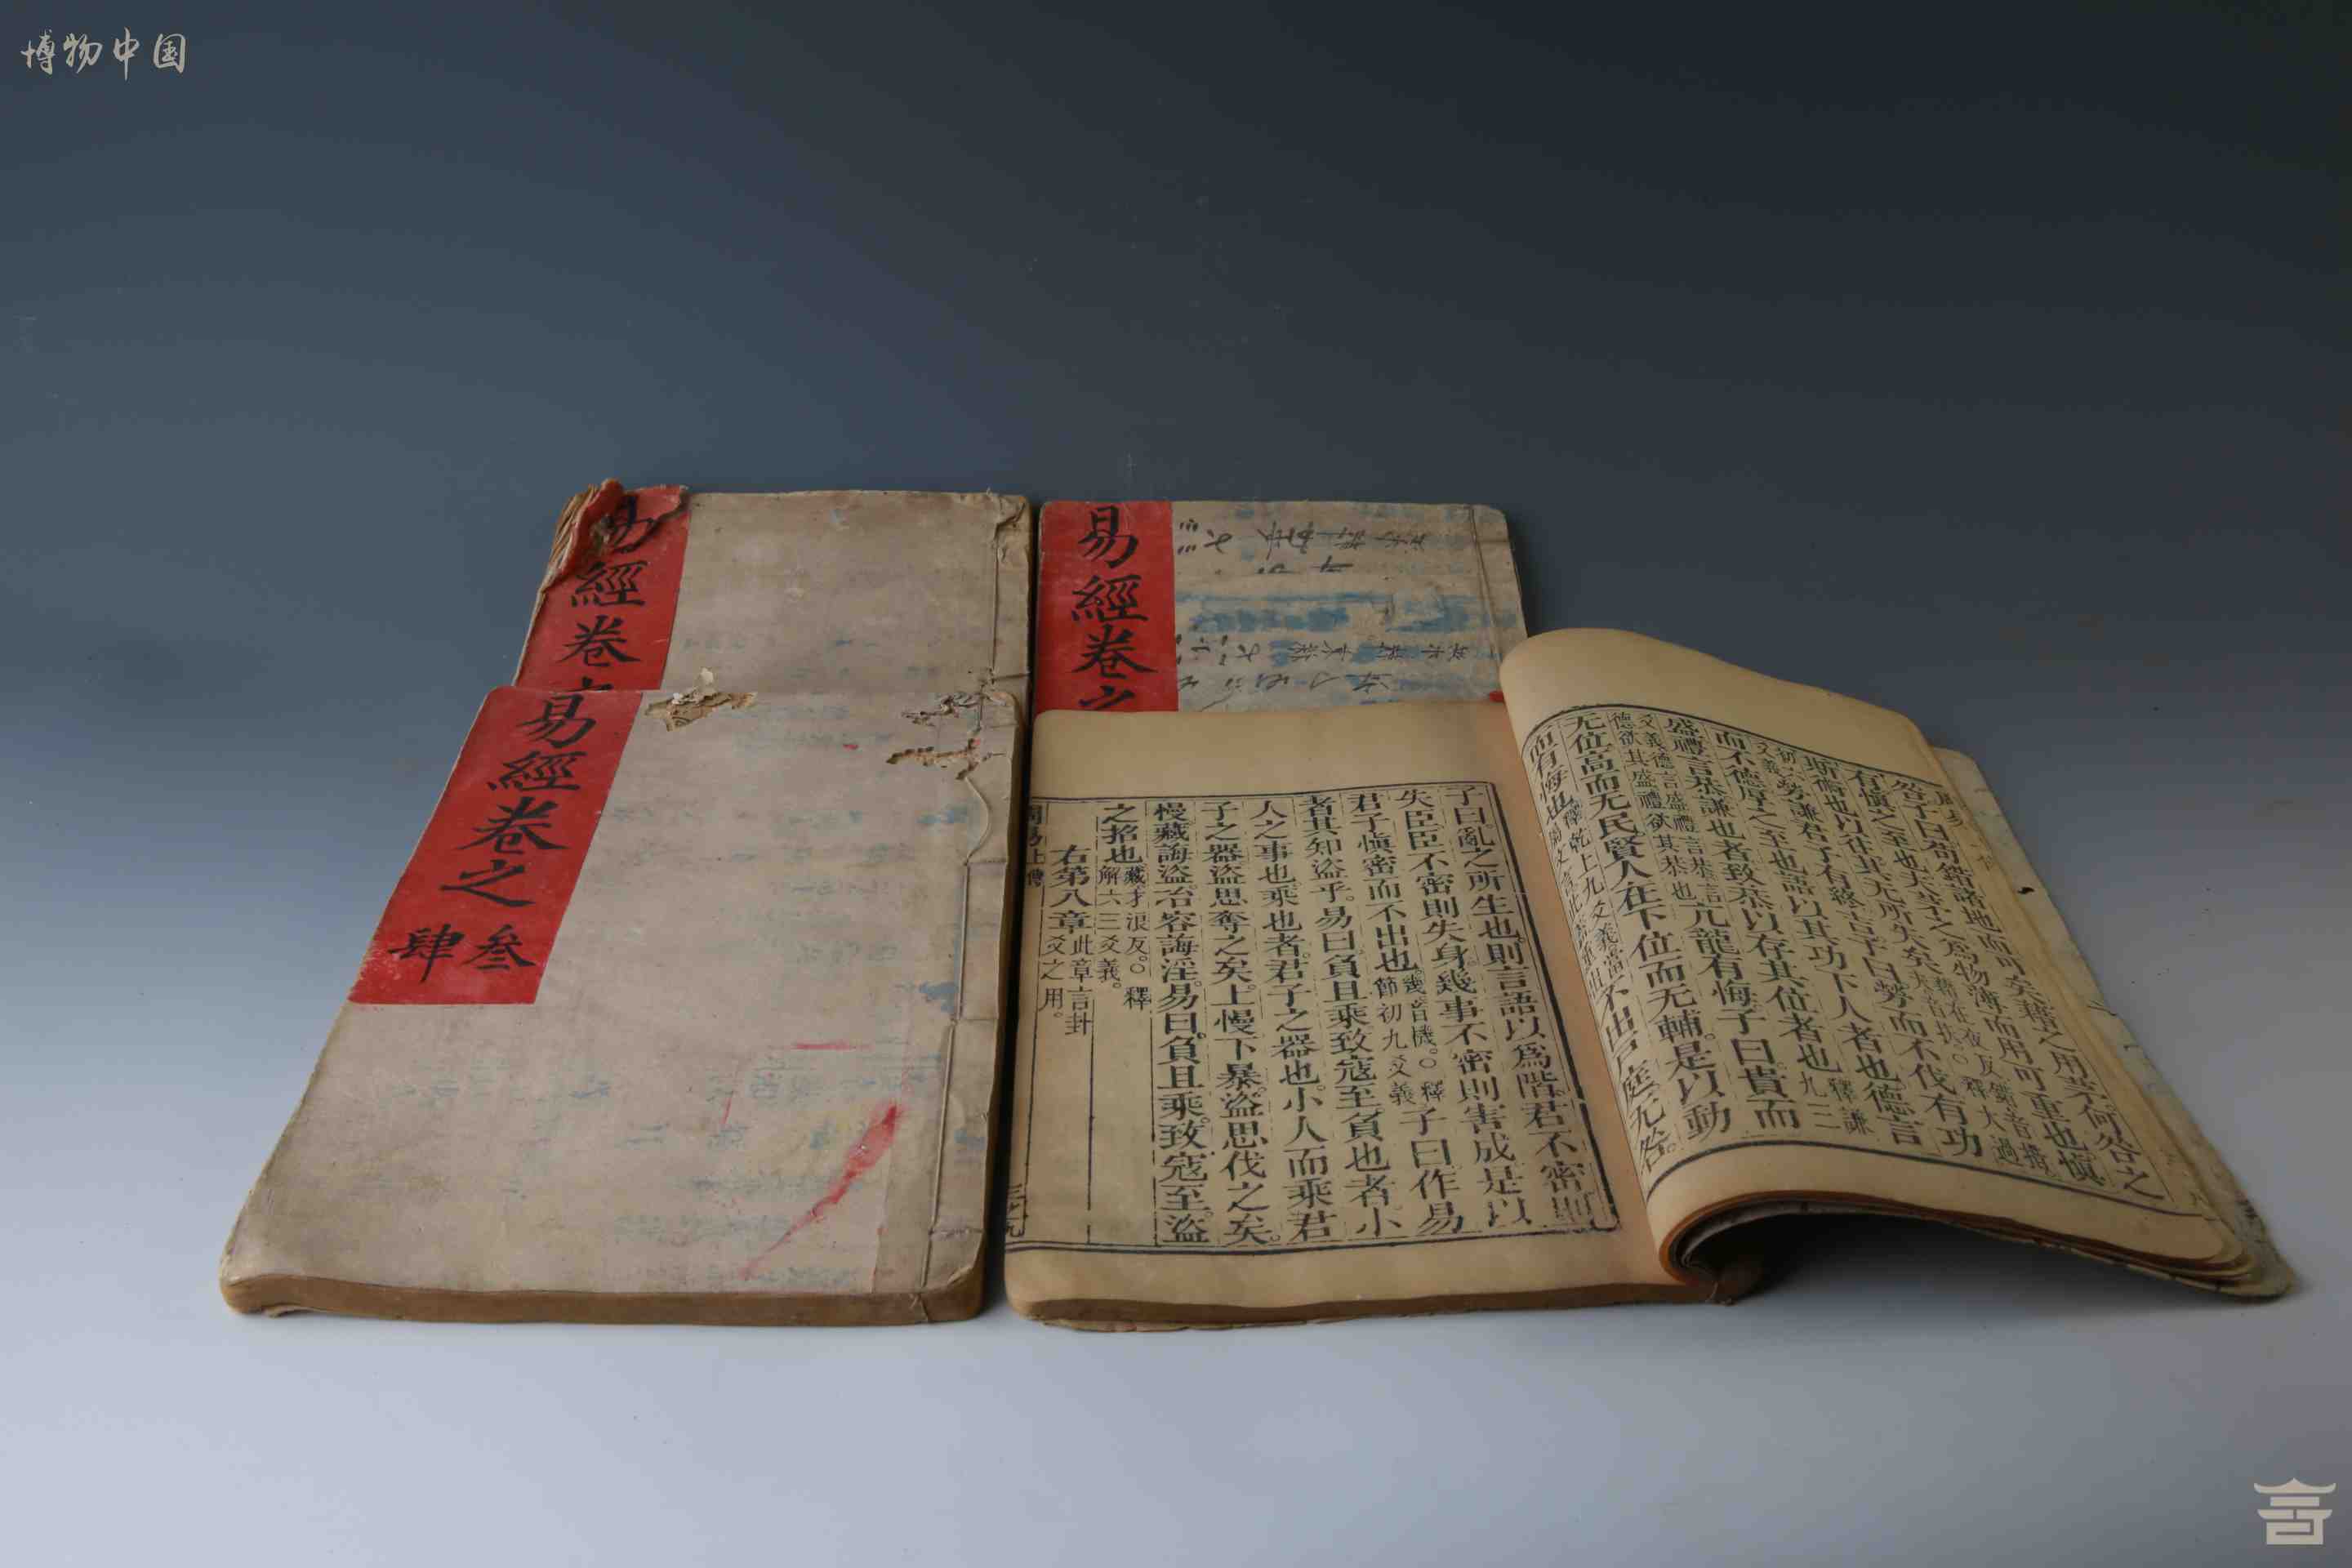 博物中国
易經卷之
易經卷之
易經卷之
叁
肆
咎子曰苟錯諸地而可矣藉之用茅何咎之
有慎之至也夫茅之為物薄而用可重也慎
斯術也以往其无所失矣
勞謙君子有終吉子曰勞而不伐有功
而不德厚之至也語以其功下人者也德言
盛禮言恭謙也者致恭以存其位者也
釋謙九三
爻義德言盛禮言恭言
德欲其盛禮欲其恭也
亢龍有悔子曰貴而
无位高而无民賢人在下位而无輔是以動
而有悔也
釋乾上九爻義當
不出戶庭无咎
子曰亂之所生也則言語以為階君不密則
失臣臣不密則失身幾事不密則害成是以
君子慎密而不出也
幾音機○釋
節初九爻義
子曰作易
者其知盜乎易曰負且乘致寇至負也者小
人之事也乘也者君子之器也小人而乘君
子之器盜思奪之矣上慢下暴盜思伐之矣
慢藏誨盜冶容誨淫易曰負且乘致寇至盜
之招也
藏才浪反○釋
解六三爻義
右第八章
此章言卦
爻之用